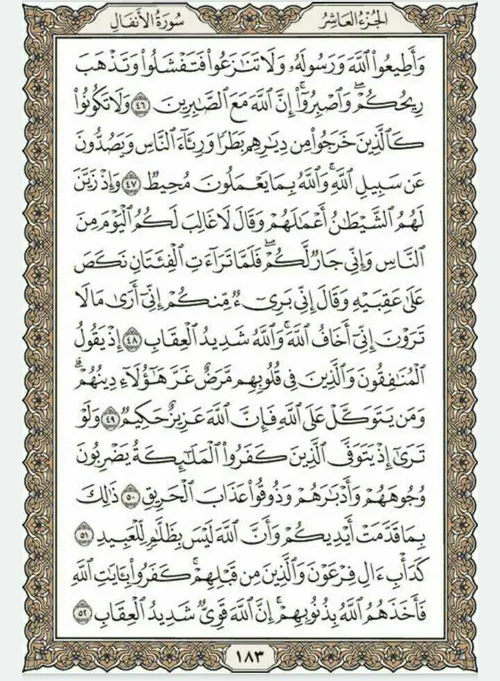 الجزء العاشر سورة الأنفال
وَأَطِيعُوا۟ ٱللَّهَ وَرَسُولَهُۥ وَلَا تَنَٰزَعُوا۟ فَتَفْشَلُوا۟ وَتَذْهَبَ
رِيحُكُمْ ۖ وَٱصْبِرُوٓا۟ ۚ إِنَّ ٱللَّهَ مَعَ ٱلصَّٰبِرِينَ ٤٦ وَلَا تَكُونُوا۟
كَٱلَّذِينَ خَرَجُوا۟ مِن دِيَٰرِهِم بَطَرًا وَرِئَآءَ ٱلنَّاسِ وَيَصُدُّونَ
عَن سَبِيلِ ٱللَّهِ ۚ وَٱللَّهُ بِمَا يَعْمَلُونَ مُحِيطٌ ٤٧ وَإِذْ زَيَّنَ
لَهُمُ ٱلشَّيْطَٰنُ أَعْمَٰلَهُمْ وَقَالَ لَا غَالِبَ لَكُمُ ٱلْيَوْمَ مِنَ
ٱلنَّاسِ وَإِنِّى جَارٌ لَّكُمْ ۖ فَلَمَّا تَرَآءَتِ ٱلْفِئَتَانِ نَكَصَ
عَلَىٰ عَقِبَيْهِ وَقَالَ إِنِّى بَرِىٓءٌ مِّنكُمْ إِنِّىٓ أَرَىٰ مَا لَا
تَرَوْنَ إِنِّىٓ أَخَافُ ٱللَّهَ ۚ وَٱللَّهُ شَدِيدُ ٱلْعِقَابِ ٤٨ إِذْ يَقُولُ
ٱلْمُنَٰفِقُونَ وَٱلَّذِينَ فِى قُلُوبِهِم مَّرَضٌ غَرَّ هَٰٓؤُلَآءِ دِينُهُمْ ۗ
وَمَن يَتَوَكَّلْ عَلَى ٱللَّهِ فَإِنَّ ٱللَّهَ عَزِيزٌ حَكِيمٌ ٤٩ وَلَوْ
تَرَىٰٓ إِذْ يَتَوَفَّى ٱلَّذِينَ كَفَرُوا۟ ٱلْمَلَٰٓئِكَةُ يَضْرِبُونَ
وُجُوهَهُمْ وَأَدْبَٰرَهُمْ وَذُوقُوا۟ عَذَابَ ٱلْحَرِيقِ ٥٠ ذَٰلِكَ
بِمَا قَدَّمَتْ أَيْدِيكُمْ وَأَنَّ ٱللَّهَ لَيْسَ بِظَلَّٰمٍ لِّلْعَبِيدِ ٥١
كَدَأْبِ ءَالِ فِرْعَوْنَ وَٱلَّذِينَ مِن قَبْلِهِمْ ۚ كَفَرُوا۟ بِـَٔايَٰتِ ٱللَّهِ
فَأَخَذَهُمُ ٱللَّهُ بِذُنُوبِهِمْ ۗ إِنَّ ٱللَّهَ قَوِىٌّ شَدِيدُ ٱلْعِقَابِ ٥٢
١٨٣